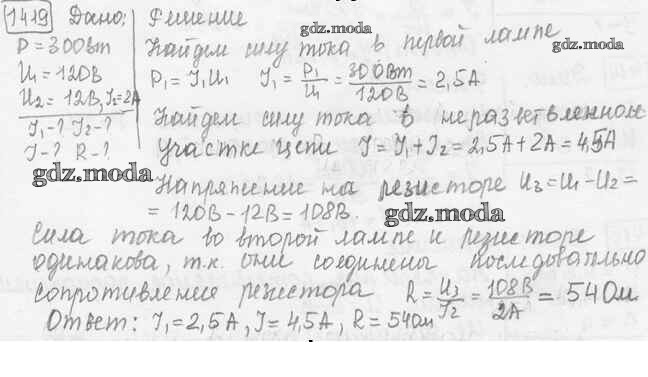 1419 Дано: Решение
P = 300Вт Найдем силу тока в первой лампе
U₁ = 120В P₁ = I₁U₁ I₁ = P₁/U₁ = 300Вт/120В = 2,5А
U₂ = 12В, I₂ = 2А Найдем силу тока в неразветвленном
I₁-? I₂-? участке цепи I = I₁ + I₂ = 2,5А + 2А = 4,5А
I-? R-?
Напряжение на резисторе U₃ = U₁ - U₂ =
= 120В - 12В = 108В.
Сила тока во второй лампе и резисторе
одинакова, т.к. они соединены последовательно
сопротивление резистора R = U₃/I₂ = 108В/2А = 54Ом
Ответ: I₁ = 2,5А, I = 4,5А, R = 54Ом
gdz.moda
gdz.moda
gdz.moda
gdz.moda